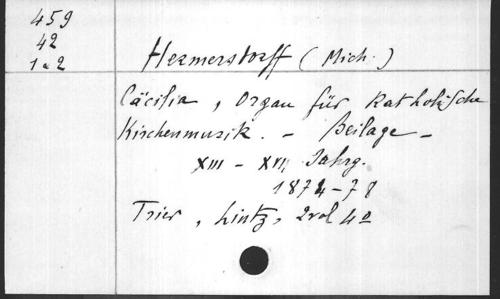 459
42
1 a 2
Hermerstorff (Mich.)
Cäcilia, Organ für Katholische
Kirchenmusik. - Beilage -
XIII - XVII Jahrg.
1874-78
Trier, Lintz, 2 vol 4o